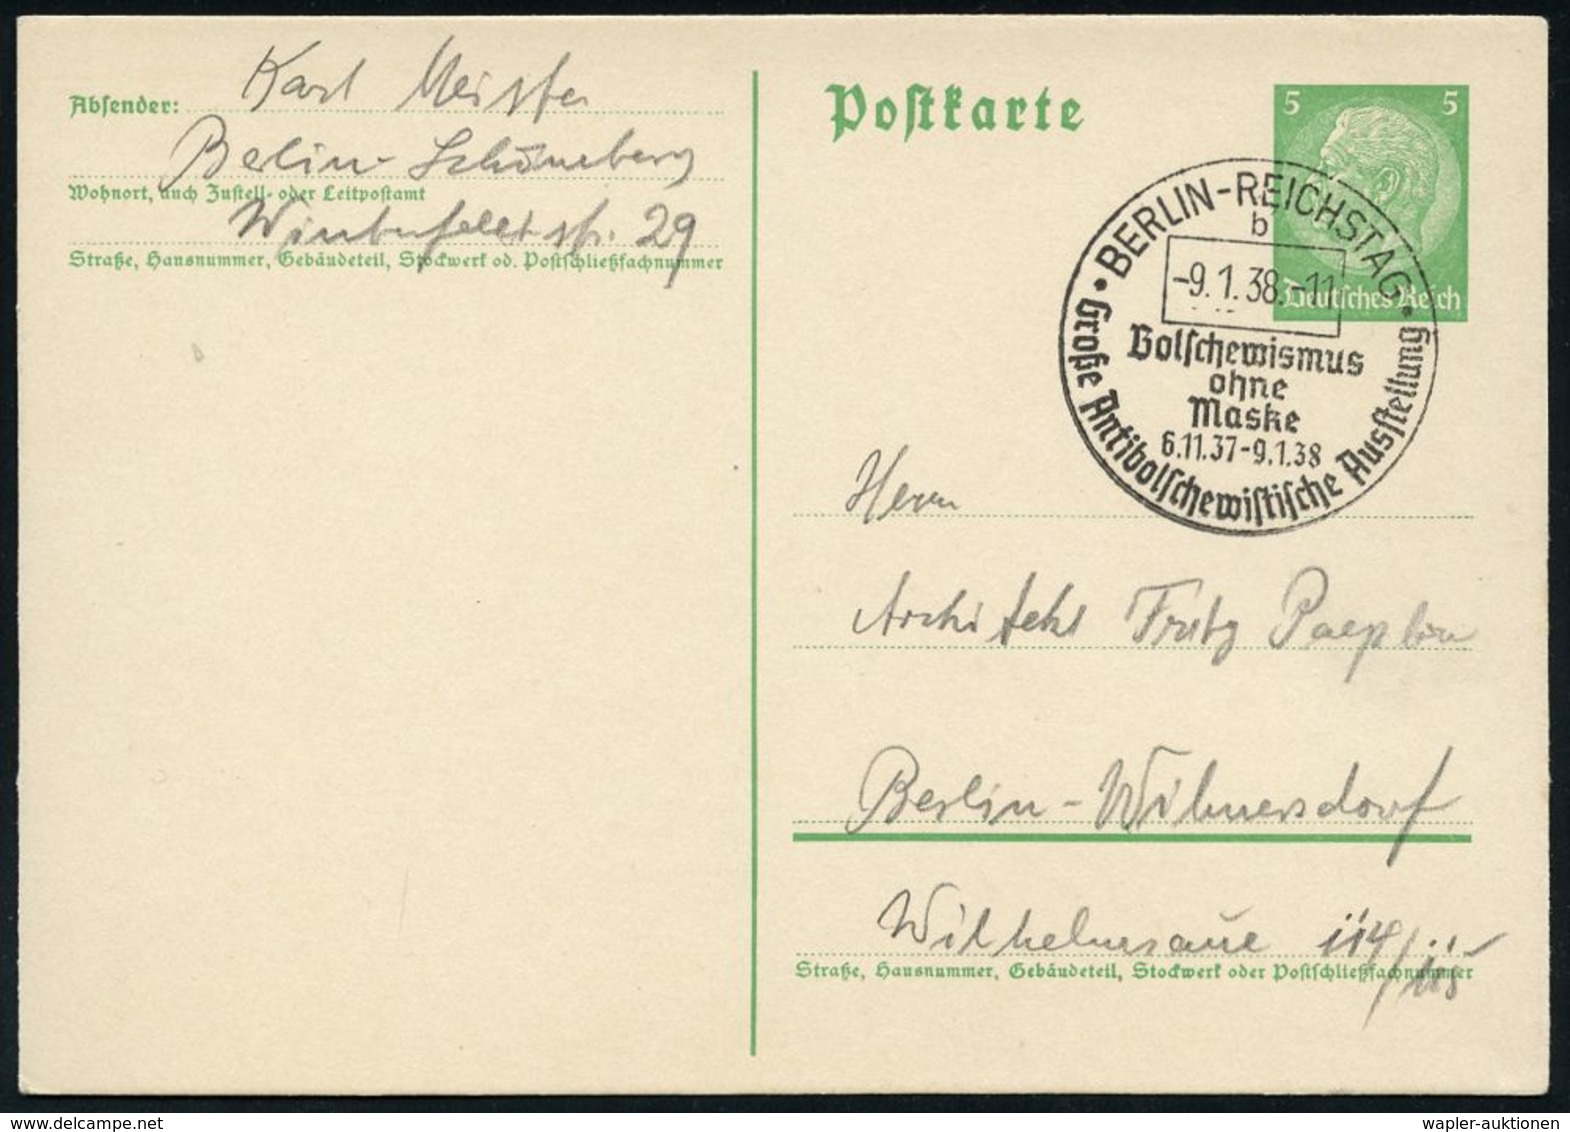 Absender: Karl Meister
Berlin-Schöneberg
Wohnort, auch Zustell- oder Leitpostamt
Winterfeldtstr. 29
Straße, Hausnummer, Gebäudeteil, Stockwerk od. Postschließfachnummer
Postkarte
5 5
Deutsches Reich
BERLIN-REICHSTAG
b
-9.1.38.-11
Bolschewismus
ohne
Maske
6.11.37-9.1.38
Große Antibolschewistische Ausstellung
Herrn
Architekt Fritz
Berlin-Wilmersdorf
Wilhelmsaue 114/
Straße, Hausnummer, Gebäudeteil, Stockwerk oder Postschließfachnummer
wapler-auktionen